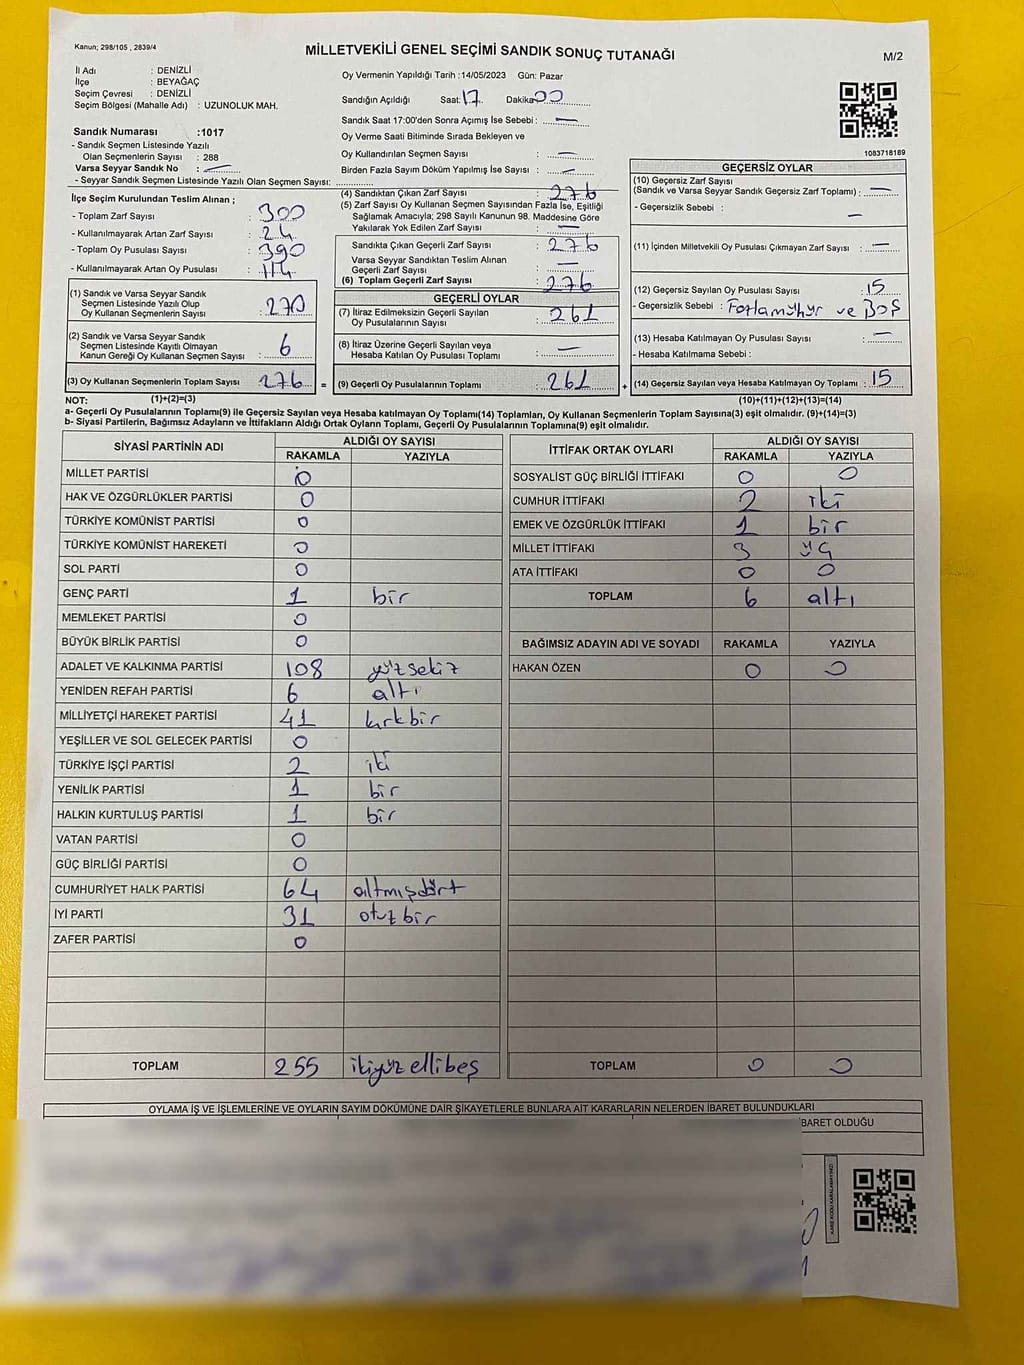 Kanun; 298/105 , 2839/4
MİLLETVEKİLİ GENEL SEÇİMİ SANDIK SONUÇ TUTANAĞI
M/2
İl Adı : DENİZLİ
İlçe : BEYAĞAÇ
Seçim Çevresi : DENİZLİ
Seçim Bölgesi (Mahalle Adı) : UZUNOLUK MAH.
Sandık Numarası :1017
- Sandık Seçmen Listesinde Yazılı
Olan Seçmenlerin Sayısı : 288
Varsa Seyyar Sandık No : —
- Seyyar Sandık Seçmen Listesinde Yazılı Olan Seçmen Sayısı:
İlçe Seçim Kurulundan Teslim Alınan ;
- Toplam Zarf Sayısı : 300
- Kullanılmayarak Artan Zarf Sayısı : 24
- Toplam Oy Pusulası Sayısı : 390
- Kullanılmayarak Artan Oy Pusulası : 114
(1) Sandık ve Varsa Seyyar Sandık
Seçmen Listesinde Yazılı Olup
Oy Kullanan Seçmenlerin Sayısı : 270
(2) Sandık ve Varsa Seyyar Sandık
Seçmen Listesinde Kayıtlı Olmayan
Kanun Gereği Oy Kullanan Seçmen Sayısı : 6
(3) Oy Kullanan Seçmenlerin Toplam Sayısı : 276 =
Oy Vermenin Yapıldığı Tarih :14/05/2023 Gün: Pazar
Sandığın Açıldığı Saat: 17 Dakika: 00
Sandık Saat 17:00'den Sonra Açımış İse Sebebi : —
Oy Verme Saati Bitiminde Sırada Bekleyen ve
Oy Kullandırılan Seçmen Sayısı : —
Birden Fazla Sayım Döküm Yapılmış İse Sayısı : —
(4) Sandıktan Çıkan Zarf Sayısı : 276
(5) Zarf Sayısı Oy Kullanan Seçmen Sayısından Fazla İse, Eşitliği
Sağlamak Amacıyla; 298 Sayılı Kanunun 98. Maddesine Göre
Yakılarak Yok Edilen Zarf Sayısı : —
Sandıkta Çıkan Geçerli Zarf Sayısı : 276
Varsa Seyyar Sandıktan Teslim Alınan
Geçerli Zarf Sayısı : —
(6) Toplam Geçerli Zarf Sayısı : 276
GEÇERLİ OYLAR
(7) İtiraz Edilmeksizin Geçerli Sayılan
Oy Pusulalarının Sayısı : 261
(8) İtiraz Üzerine Geçerli Sayılan veya
Hesaba Katılan Oy Pusulası Toplamı : —
(9) Geçerli Oy Pusulalarının Toplamı : 261 +
1083718189
GEÇERSİZ OYLAR
(10) Geçersiz Zarf Sayısı
(Sandık ve Varsa Seyyar Sandık Geçersiz Zarf Toplamı) : —
- Geçersizlik Sebebi : —
(11) İçinden Milletvekili Oy Pusulası Çıkmayan Zarf Sayısı : —
(12) Geçersiz Sayılan Oy Pusulası Sayısı : 15
- Geçersizlik Sebebi : Fazlamühür ve Boş
(13) Hesaba Katılmayan Oy Pusulası Sayısı : —
- Hesaba Katılmama Sebebi :
(14) Geçersiz Sayılan veya Hesaba Katılmayan Oy Toplamı : 15
NOT: (1)+(2)=(3) (10)+(11)+(12)+(13)=(14)
a- Geçerli Oy Pusulalarının Toplamı(9) ile Geçersiz Sayılan veya Hesaba katılmayan Oy Toplamı(14) Toplamları, Oy Kullanan Seçmenlerin Toplam Sayısına(3) eşit olmalıdır. (9)+(14)=(3)
b- Siyasi Partilerin, Bağımsız Adayların ve İttifakların Aldığı Ortak Oyların Toplamı, Geçerli Oy Pusulalarının Toplamına(9) eşit olmalıdır.
SİYASİ PARTİNİN ADI ALDIĞI OY SAYISI
RAKAMLA YAZIYLA
MİLLET PARTİSİ 0
HAK VE ÖZGÜRLÜKLER PARTİSİ 0
TÜRKİYE KOMÜNİST PARTİSİ 0
TÜRKİYE KOMÜNİST HAREKETİ 0
SOL PARTİ 0
GENÇ PARTİ 1 bir
MEMLEKET PARTİSİ 0
BÜYÜK BİRLİK PARTİSİ 0
ADALET VE KALKINMA PARTİSİ 108 yüzsekiz
YENİDEN REFAH PARTİSİ 6 altı
MİLLİYETÇİ HAREKET PARTİSİ 41 kırkbir
YEŞİLLER VE SOL GELECEK PARTİSİ 0
TÜRKİYE İŞÇİ PARTİSİ 2 iki
YENİLİK PARTİSİ 1 bir
HALKIN KURTULUŞ PARTİSİ 1 bir
VATAN PARTİSİ 0
GÜÇ BİRLİĞİ PARTİSİ 0
CUMHURİYET HALK PARTİSİ 64 altmışdört
İYİ PARTİ 31 otuzbir
ZAFER PARTİSİ 0
TOPLAM 255 ikiyüzellibeş
İTTİFAK ORTAK OYLARI ALDIĞI OY SAYISI
RAKAMLA YAZIYLA
SOSYALİST GÜÇ BİRLİĞİ İTTİFAKI 0 0
CUMHUR İTTİFAKI 2 iki
EMEK VE ÖZGÜRLÜK İTTİFAKI 1 bir
MİLLET İTTİFAKI 3 üç
ATA İTTİFAKI 0 0
TOPLAM 6 altı
BAĞIMSIZ ADAYIN ADI VE SOYADI RAKAMLA YAZIYLA
HAKAN ÖZEN 0 0
TOPLAM 0 0
OYLAMA İŞ VE İŞLEMLERİNE VE OYLARIN SAYIM DÖKÜMÜNE DAİR ŞİKAYETLERLE BUNLARA AİT KARARLARIN NELERDEN İBARET BULUNDUKLARI
BARET OLDUĞU